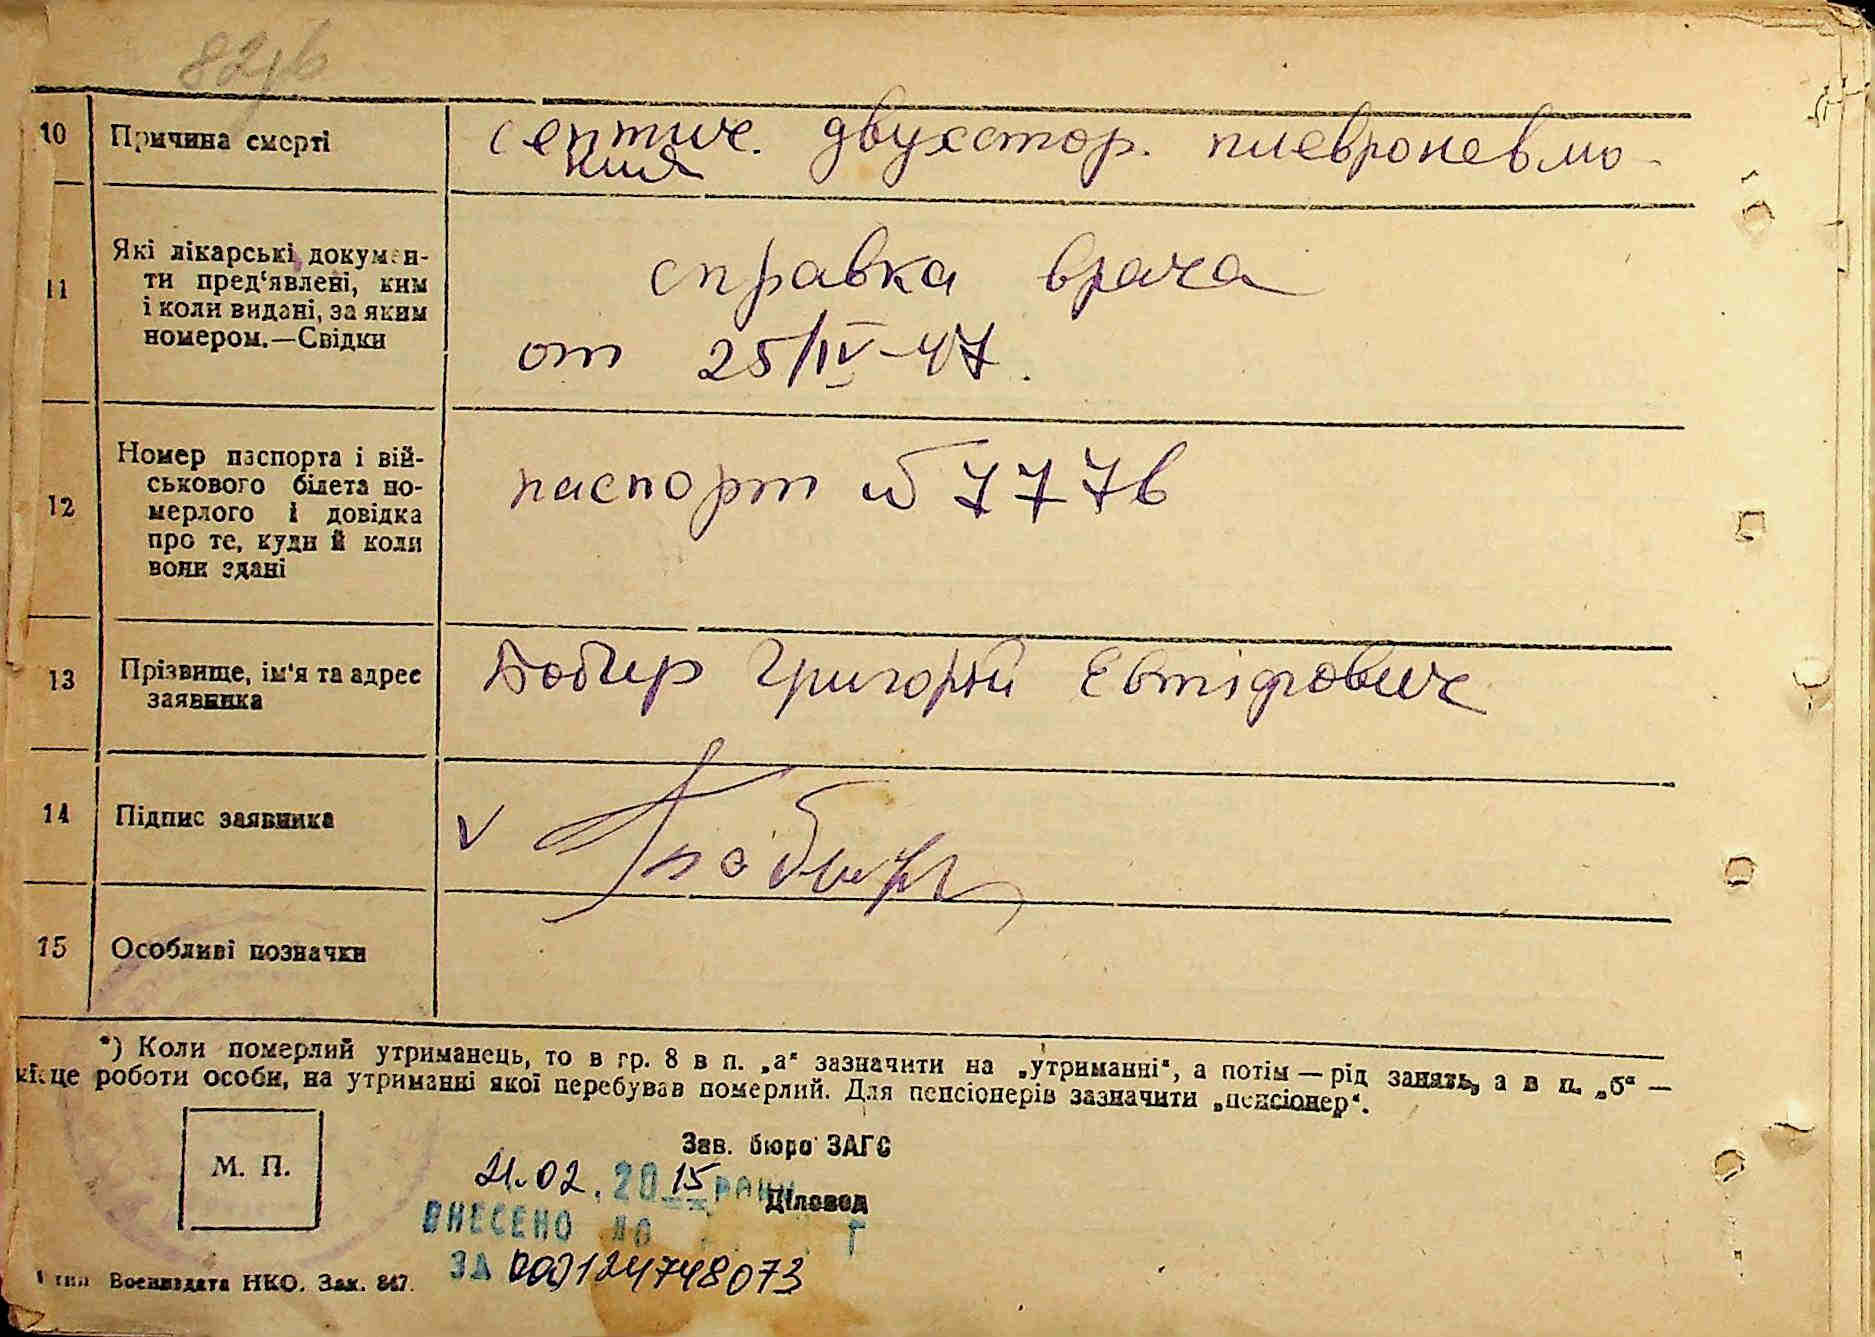 10 Причина смерті септич. двухстор. плевропевмо-
ния
11 Які лікарські докумен-
ти пред‘явлені, ким
і коли видані, за яким
номером.—Свідки
справка врача
от 25/IV-47.
12 Номер паспорта і вій-
ськового білета по-
мерлого і довідка
про те, куди й коли
вони здані
паспорт № 7776
13 Прізвище, ім‘я та адрес
заявника
Григорий Евтіфович
14 Підпис заявника V
15 Особливі позначки
*) Коли померлий утриманець, то в гр. 8 в п. „а“ зазначити на „утриманні“, а потім — рід занять, а в п. „б“ —
місце роботи особи, на утриманні якої перебував померлий. Для пенсіонерів зазначити „пенсіонер“.
М. П.
Зав. бюро ЗАГС
21.02.2015 року
Діловод
ВНЕСЕНО ДО Г
ЗА 00124748073
тип Воениздата НКО. Зак. 847.